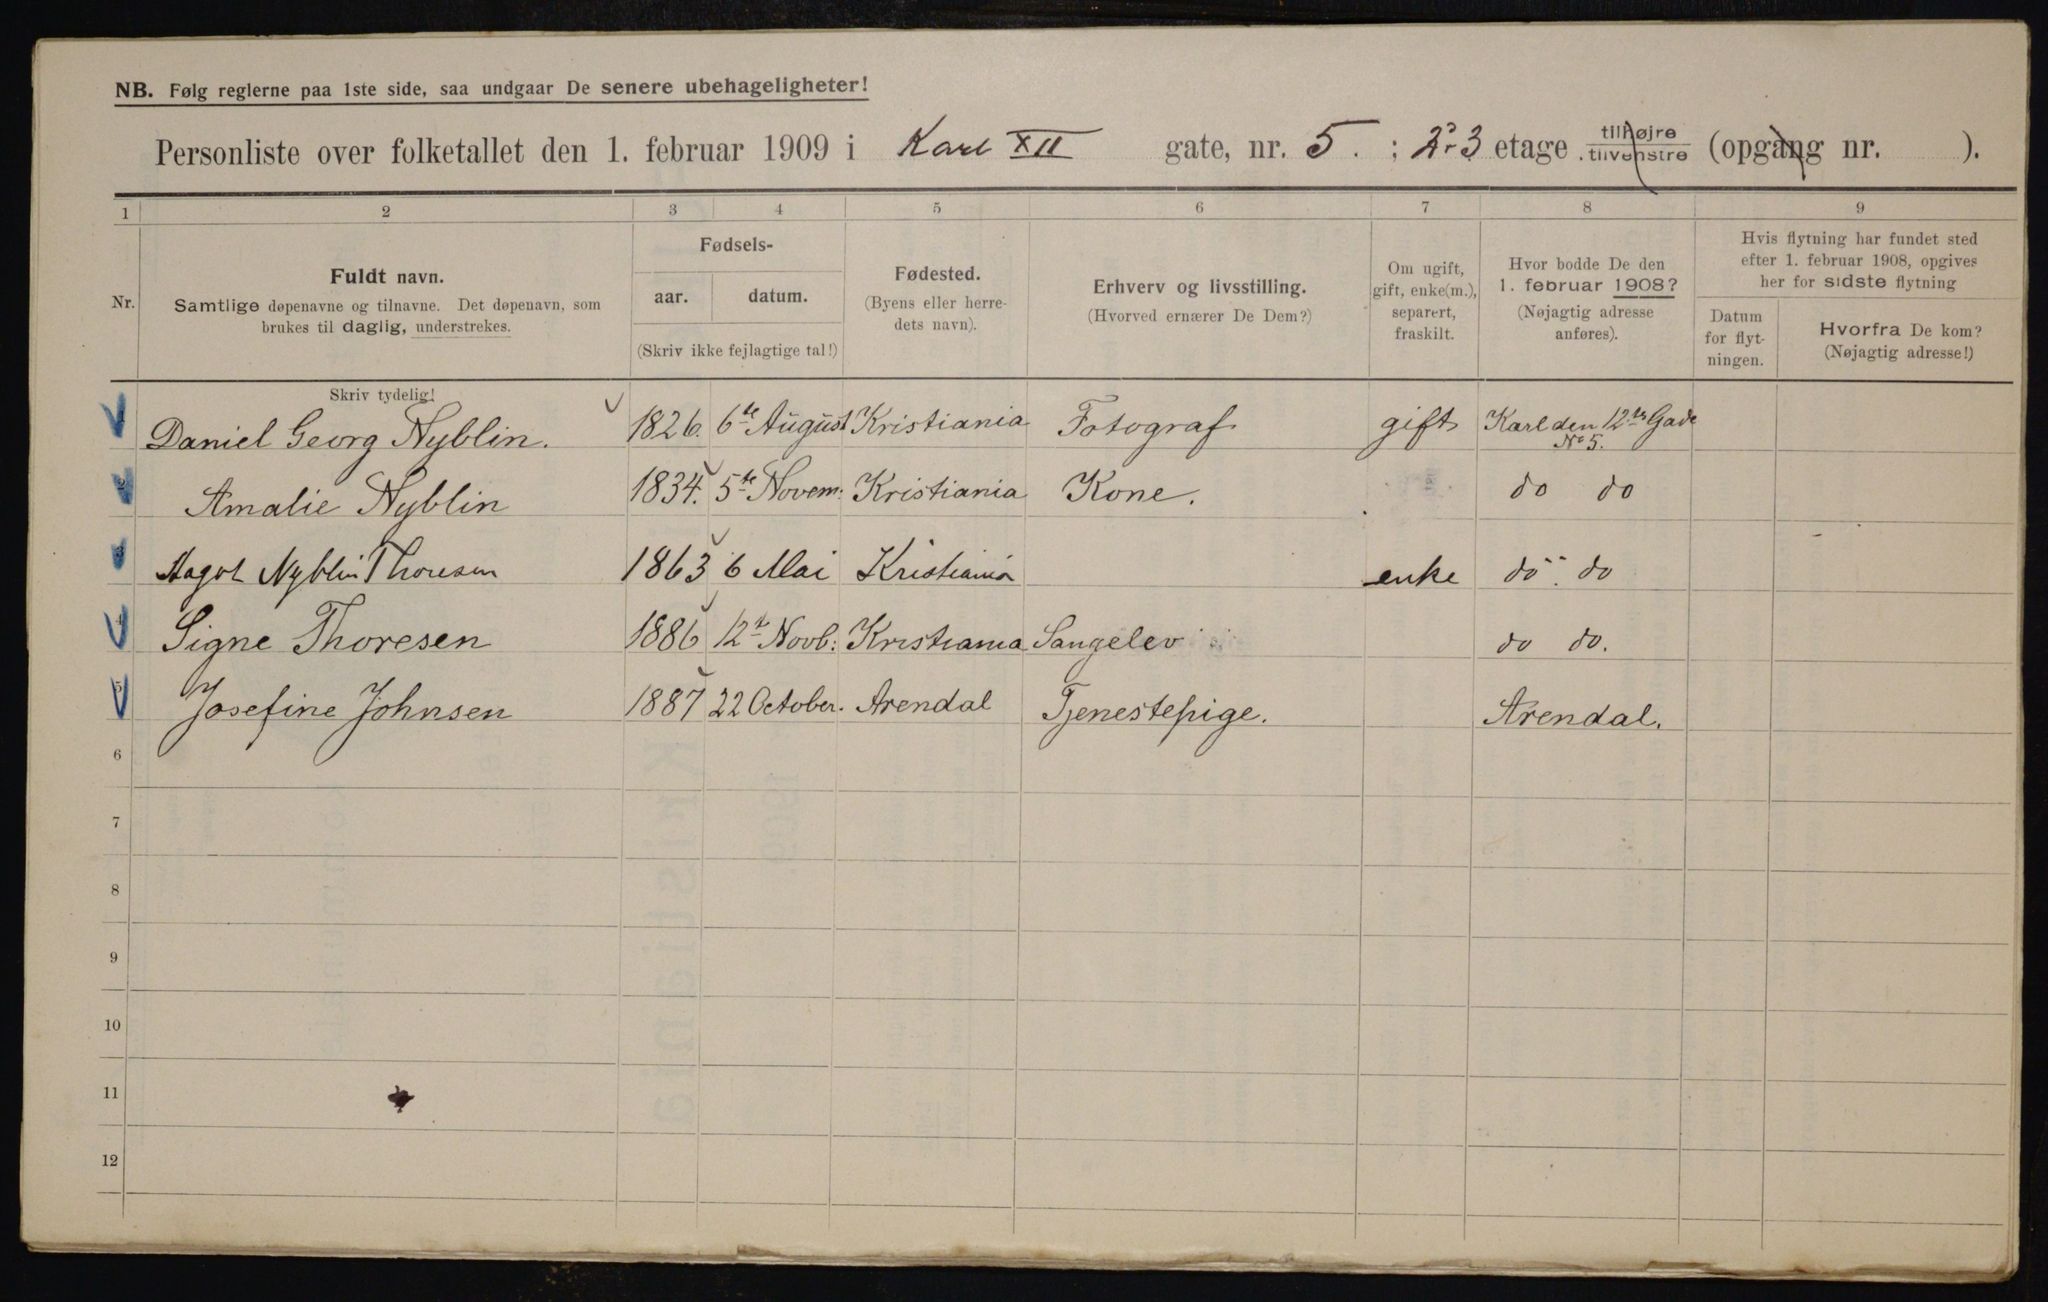 NB. Følg reglerne paa 1ste side, saa undgaar De senere ubehageligheter!
Personliste over folketallet den 1. februar 1909 i Karl XII gate, nr. 5. ; 2 3 etage tilhøjre tilvenstre (opgang nr. ).
1 2 3 4 5 6 7 8 9
Nr.
Fuldt navn.
Samtlige døpenavne og tilnavne. Det døpenavn, som
brukes til daglig, understrekes.
Fødsels-
aar. datum.
(Skriv ikke fejlagtige tal!)
Fødested.
(Byens eller herre-
dets navn).
Erhverv og livsstilling.
(Hvorved ernærer De Dem?)
Om ugift,
gift, enke(m.),
separert,
fraskilt.
Hvor bodde De den
1. februar 1908?
(Nøjagtig adresse
anføres).
Hvis flytning har fundet sted
efter 1. februar 1908, opgives
her for sidste flytning
Datum
for flyt-
ningen.
Hvorfra De kom?
(Nøjagtig adresse!)
Skriv tydelig!
1 Daniel Georg Nyblin. 1826. 6te August Kristiania Fotograf gift Karl den 12te Gade
No 5.
2 Amalie Nyblin 1834. 5te Novem: Kristiania Kone. do do
3 Aagot Nyblin Thoresen 1863 6 Mai Kristiania enke do do
4 Signe Thoresen 1886 12te Novb: Kristiania Sangelev do do.
5 Josefine Johnsen 1887 22 October. Arendal Tjenestepige. Arendal.
6
7
8
9
10
11
12